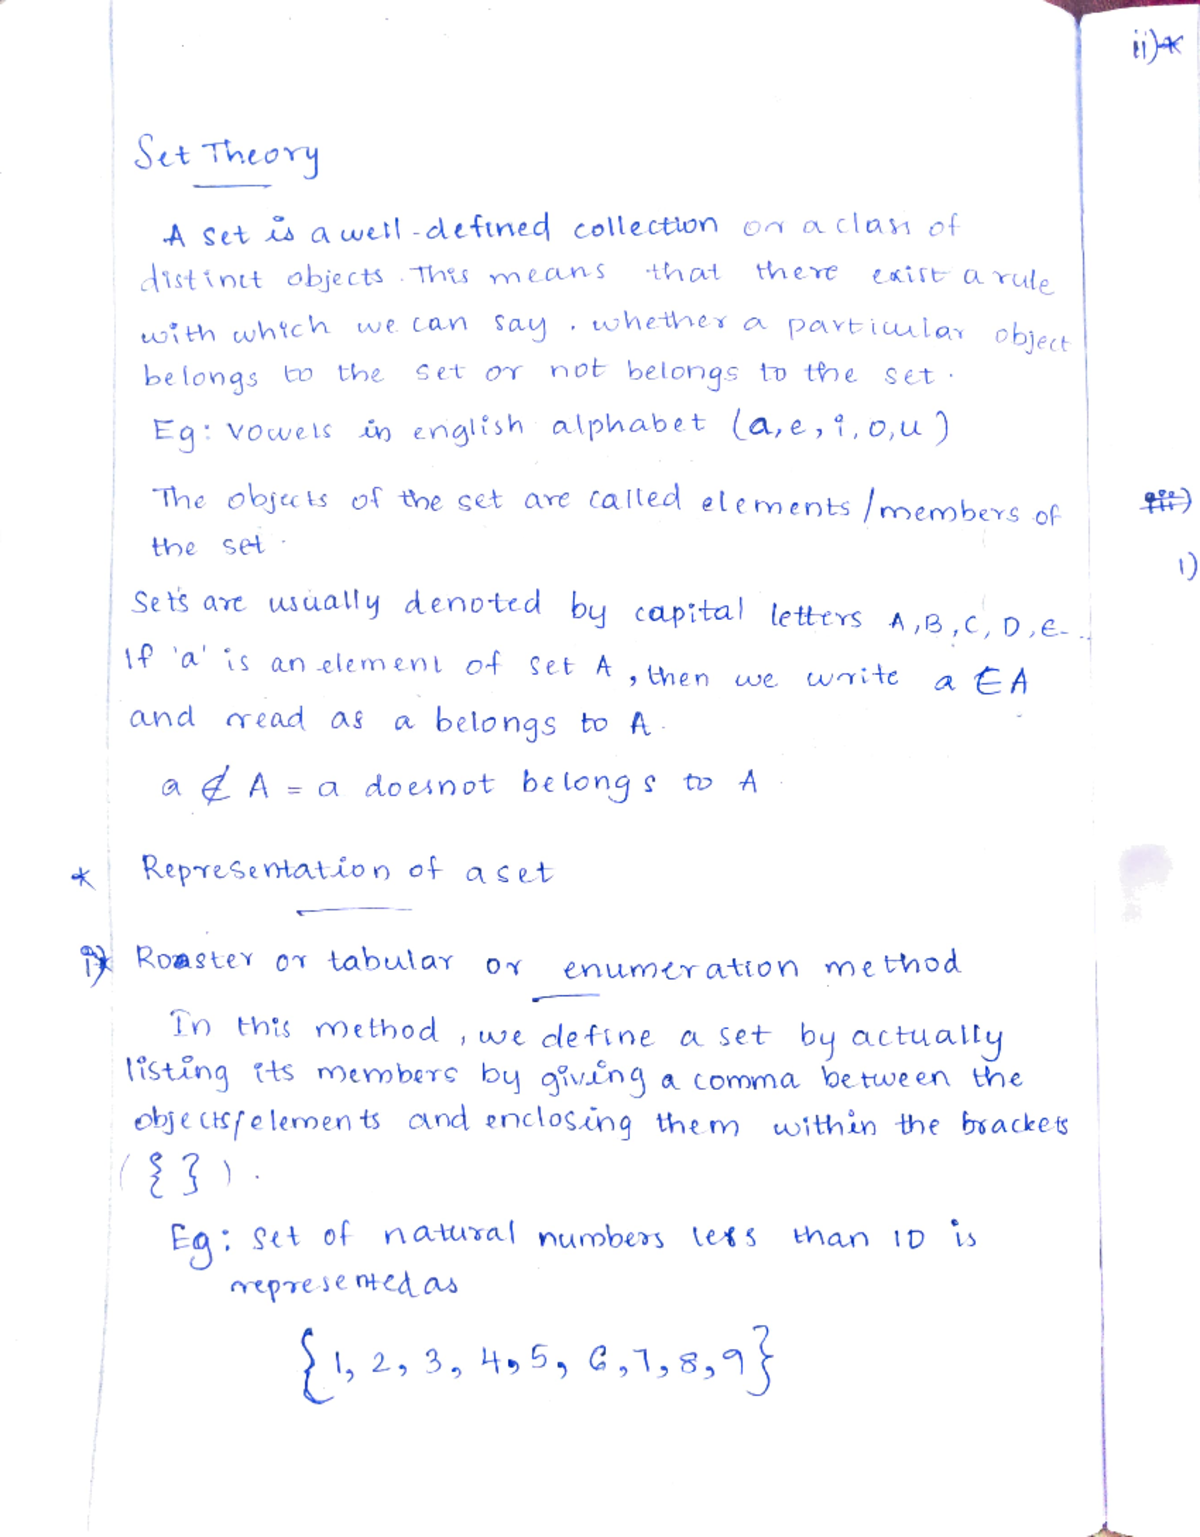 ii)*
Set Theory
A set is a well-defined collection or a class of
distinct objects. This means that there exist a rule
with which we can say, whether a particular object
belongs to the set or not belongs to the set.
Eg: vowels in english alphabet (a,e,i,o,u)
The objects of the set are called elements/members of
the set.
iii)
1)
Sets are usually denoted by capital letters A,B,C,D,E...
If 'a' is an element of set A, then we write a ∈ A
and read as a belongs to A.
a ∉ A = a doesnot belongs to A
* Representation of a set
i)* Roaster or tabular or enumeration method
In this method, we define a set by actually
listing its members by giving a comma between the
objects/elements and enclosing them within the brackets
({ }).
Eg: set of natural numbers less than 10 is
represented as
{1, 2, 3, 4, 5, 6, 7, 8, 9}